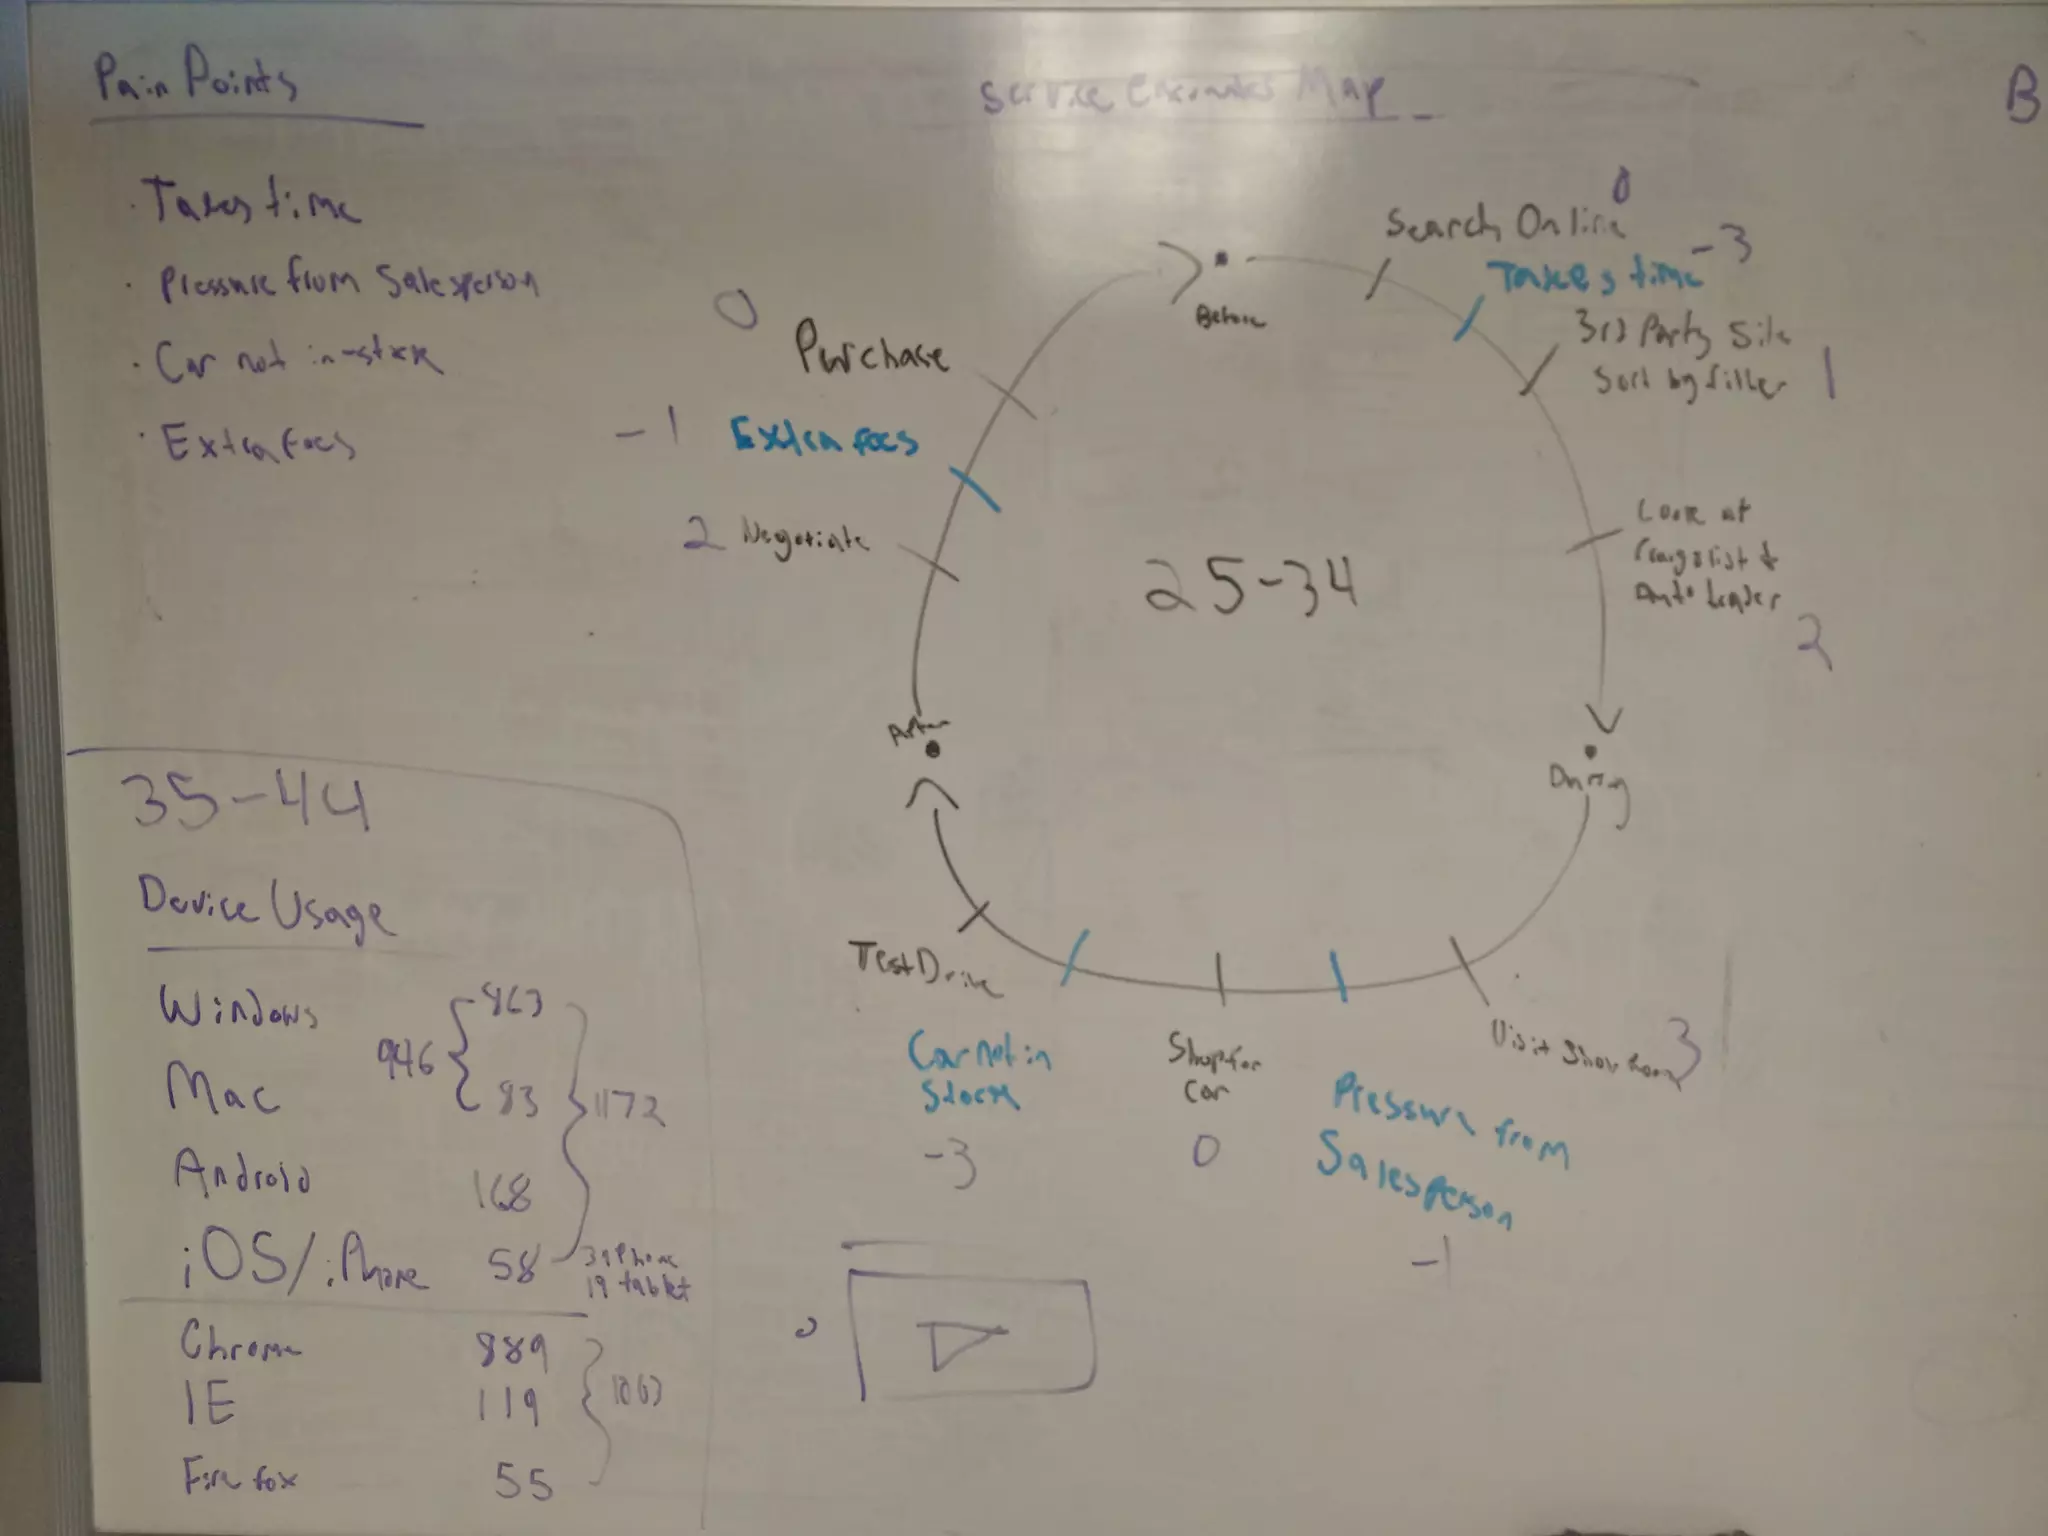 Pain Points
· Takes time
· Pressure from Salesperson
· Car not in-stock
· Extra Fees
Service Encounter Map
B
25-34
Before
Search Online 0
Takes time -3
3rd Party Site
Sort by filter 1
Look at
Craigslist &
Auto trader
2
During
Visit Showroom 3
Pressure from
Salesperson
-1
Shop for
Car
0
Car not in
Stock
-3
Test Drive
After
2 Negotiate
-1 Extra Fees
0
Purchase
35-44
Device Usage
Windows 863
946
Mac 83
1172
Android 168
iOS/iPhone 58
39 Phone
19 tablet
Chrome 889
IE 119
1063
Firefox 55